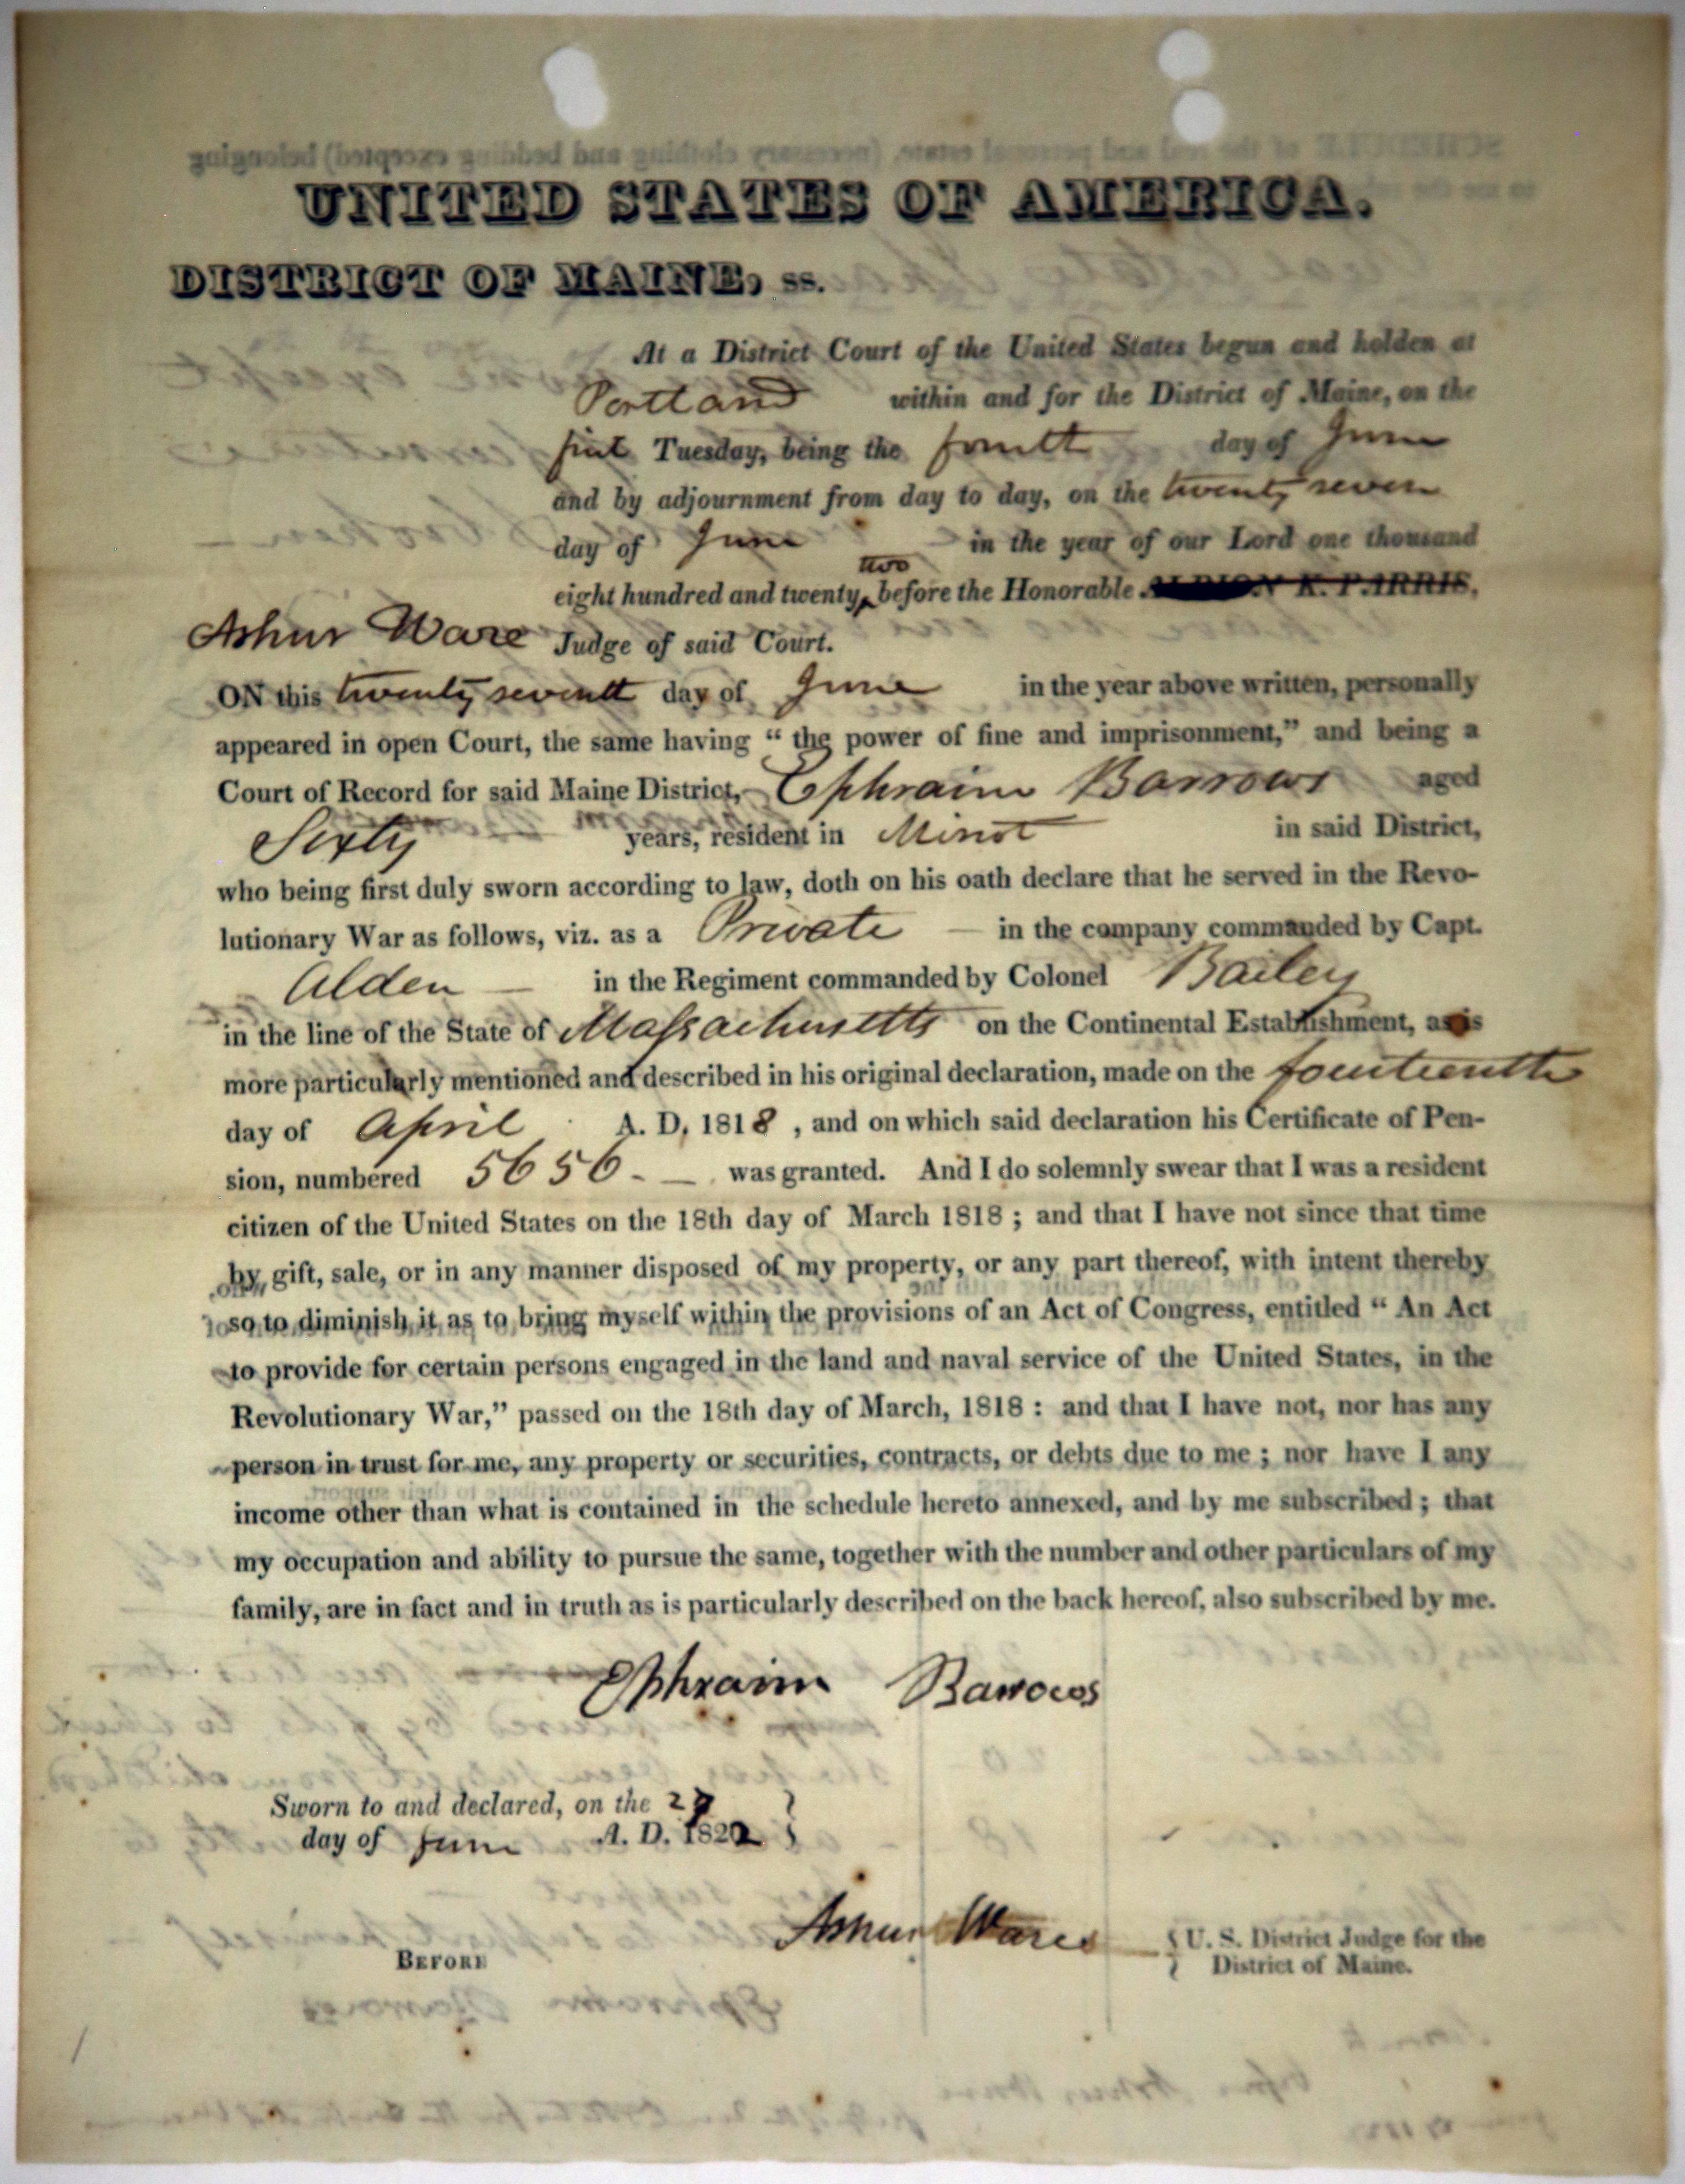 UNITED STATES OF AMERICA.
DISTRICT OF MAINE, ss.
At a District Court of the United States begun and holden at
Portland within and for the District of Maine, on the
first Tuesday, being the fourth day of June
and by adjournment from day to day, on the twenty seven
day of June in the year of our Lord one thousand
two
eight hundred and twenty, before the Honorable ALBION K. PARRIS,
Ashur Ware Judge of said Court.
ON this twenty seventh day of June in the year above written, personally
appeared in open Court, the same having “ the power of fine and imprisonment,” and being a
Court of Record for said Maine District, Ephraim Barrows aged
Sixty years, resident in Minot in said District,
who being first duly sworn according to law, doth on his oath declare that he served in the Revo-
lutionary War as follows, viz. as a Private — in the company commanded by Capt.
Alden — in the Regiment commanded by Colonel Bailey
in the line of the State of Massachusetts on the Continental Establishment, as is
more particularly mentioned and described in his original declaration, made on the fourteenth
day of April A. D. 1818 , and on which said declaration his Certificate of Pen-
sion, numbered 5656 - — was granted. And I do solemnly swear that I was a resident
citizen of the United States on the 18th day of March 1818 ; and that I have not since that time
by gift, sale, or in any manner disposed of my property, or any part thereof, with intent thereby
so to diminish it as to bring myself within the provisions of an Act of Congress, entitled “ An Act
to provide for certain persons engaged in the land and naval service of the United States, in the
Revolutionary War,” passed on the 18th day of March, 1818 : and that I have not, nor has any
person in trust for me, any property or securities, contracts, or debts due to me ; nor have I any
income other than what is contained in the schedule hereto annexed, and by me subscribed ; that
my occupation and ability to pursue the same, together with the number and other particulars of my
family, are in fact and in truth as is particularly described on the back hereof, also subscribed by me.
Ephraim Barrows
Sworn to and declared, on the 27
day of June A. D. 1822
Ashur Ware
BEFORE
U. S. District Judge for the
District of Maine.